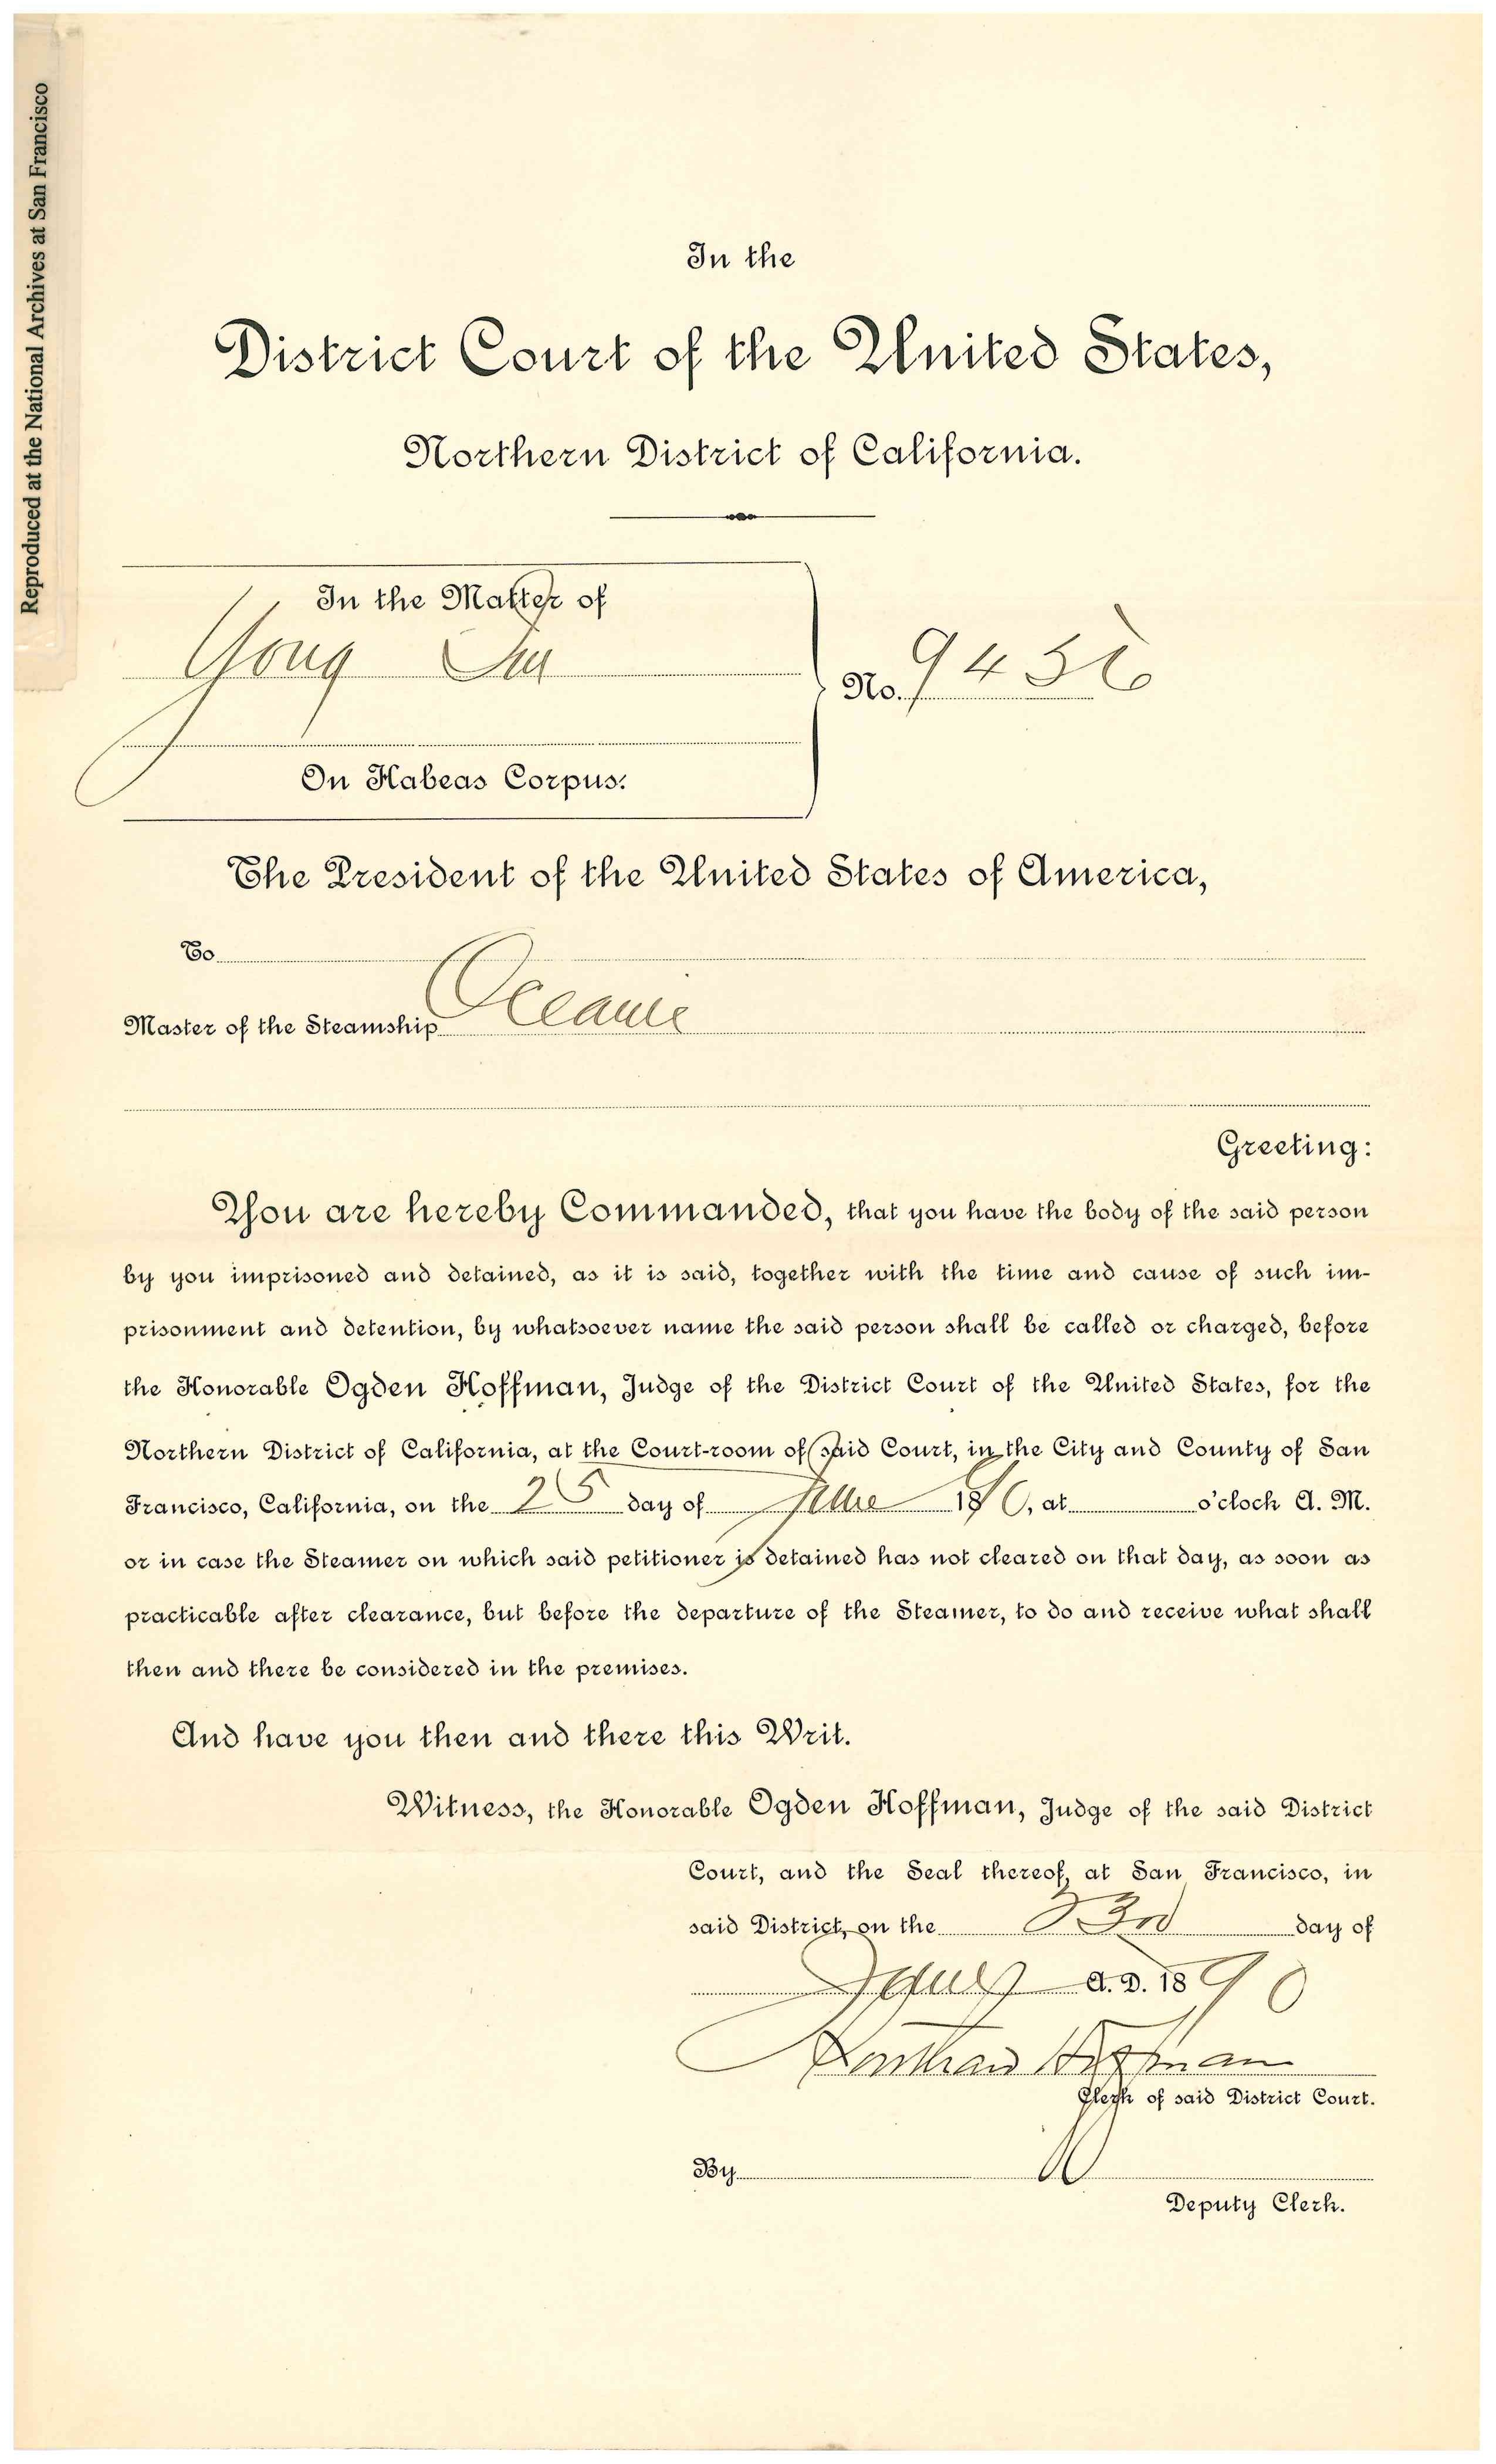 Reproduced at the National Archives at San Francisco
In the
District Court of the United States,
Northern District of California.
In the Matter of
No. 9436
On Habeas Corpus.
The President of the United States of America,
To
Master of the Steamship Oceanic
Greeting:
You are hereby Commanded, that you have the body of the said person
by you imprisoned and detained, as it is said, together with the time and cause of such im-
prisonment and detention, by whatsoever name the said person shall be called or charged, before
the Honorable Ogden Hoffman, Judge of the District Court of the United States, for the
Northern District of California, at the Court-room of said Court, in the City and County of San
Francisco, California, on the 25 day of 1890, at o'clock A. M.
or in case the Steamer on which said petitioner is detained has not cleared on that day, as soon as
practicable after clearance, but before the departure of the Steamer, to do and receive what shall
then and there be considered in the premises.
And have you then and there this Writ.
Witness, the Honorable Ogden Hoffman, Judge of the said District
Court, and the Seal thereof, at San Francisco, in
said District, on the 23rd day of
A.D. 1890
Southard Hoffman
Clerk of said District Court.
By
Deputy Clerk.